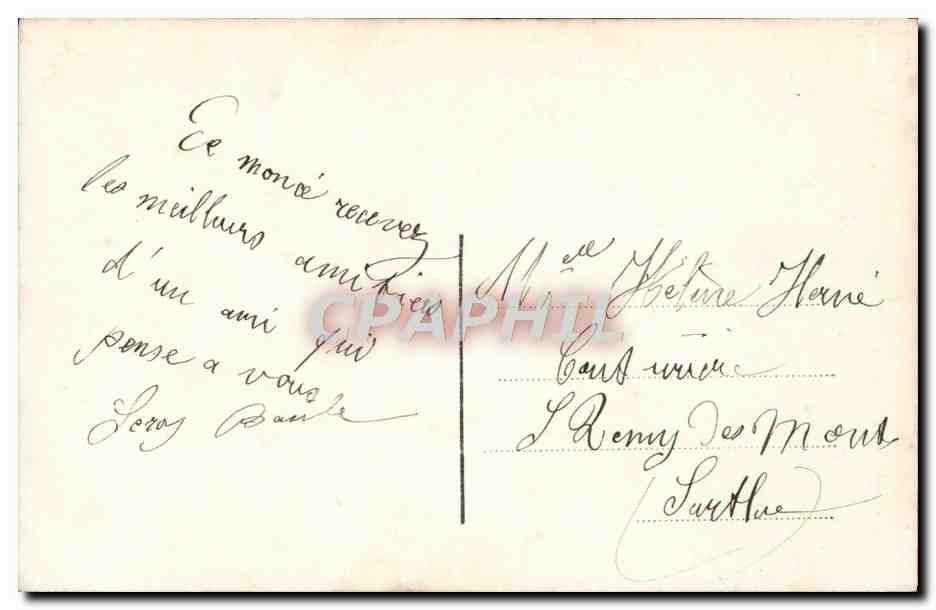 recevez
les meilleurs amitiés
d'un ami qui
pense a vous
Leroy
CPAPHIL
Melle Hélène Hervé
Couturière
S Remy des Mont
(Sarthe)